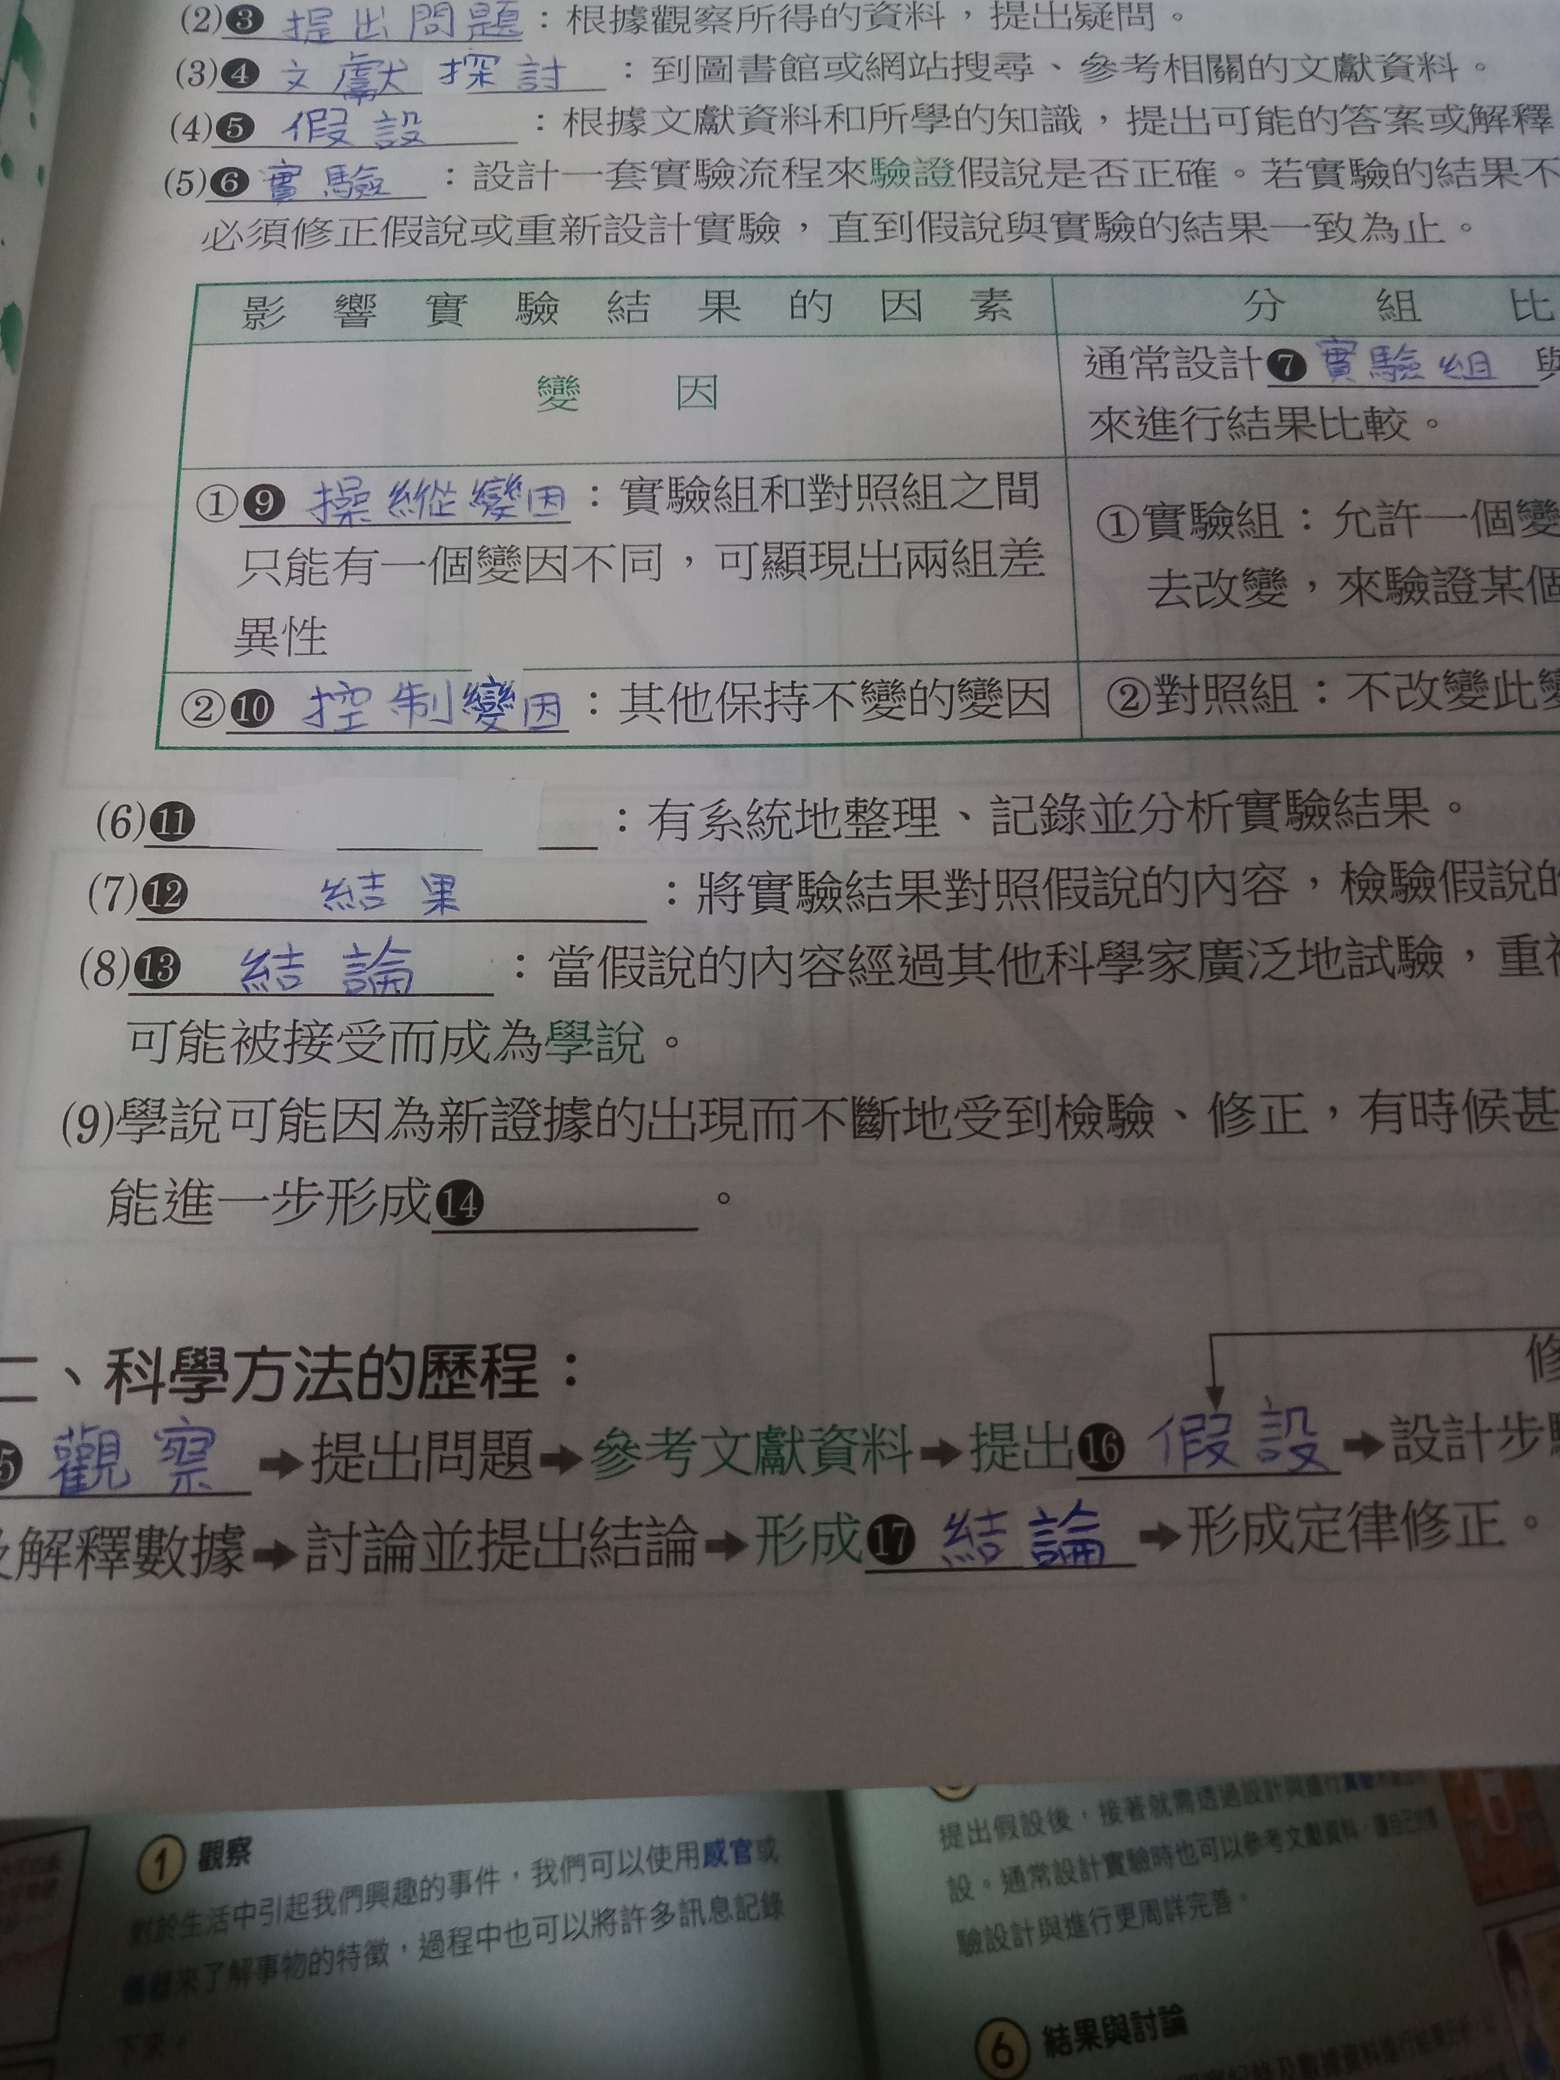 (2)❸提出問題：根據觀察所得的資料，提出疑問。
(3)❹文獻探討：到圖書館或網站搜尋、參考相關的文獻資料。
(4)❺假設：根據文獻資料和所學的知識，提出可能的答案或解釋
(5)❻實驗：設計一套實驗流程來驗證假說是否正確。若實驗的結果不
必須修正假說或重新設計實驗，直到假說與實驗的結果一致為止。
影響實驗結果的因素 分組比
變因 通常設計❼實驗組與
來進行結果比較。
①❾操縱變因：實驗組和對照組之間
只能有一個變因不同，可顯現出兩組差
異性
①實驗組：允許一個變
去改變，來驗證某個
②❿控制變因：其他保持不變的變因 ②對照組：不改變此變
(6)⓫：有系統地整理、記錄並分析實驗結果。
(7)⓬結果：將實驗結果對照假說的內容，檢驗假說的
(8)⓭結論：當假說的內容經過其他科學家廣泛地試驗，重複
可能被接受而成為學說。
(9)學說可能因為新證據的出現而不斷地受到檢驗、修正，有時候甚
能進一步形成⓮。
二、科學方法的歷程：
修
觀察➡提出問題➡參考文獻資料➡提出⓰假設➡設計步驟
及解釋數據➡討論並提出結論➡形成⓱結論➡形成定律修正。
① 觀察
對於生活中引起我們興趣的事件，我們可以使用感官或
儀器來了解事物的特徵，過程中也可以將許多訊息記錄
下來。
提出假設後，接著就需透過設計與進行實驗
設。通常設計實驗時也可以參考文獻資料，讓自己的實
驗設計與進行更周詳完善。
⑥ 結果與討論